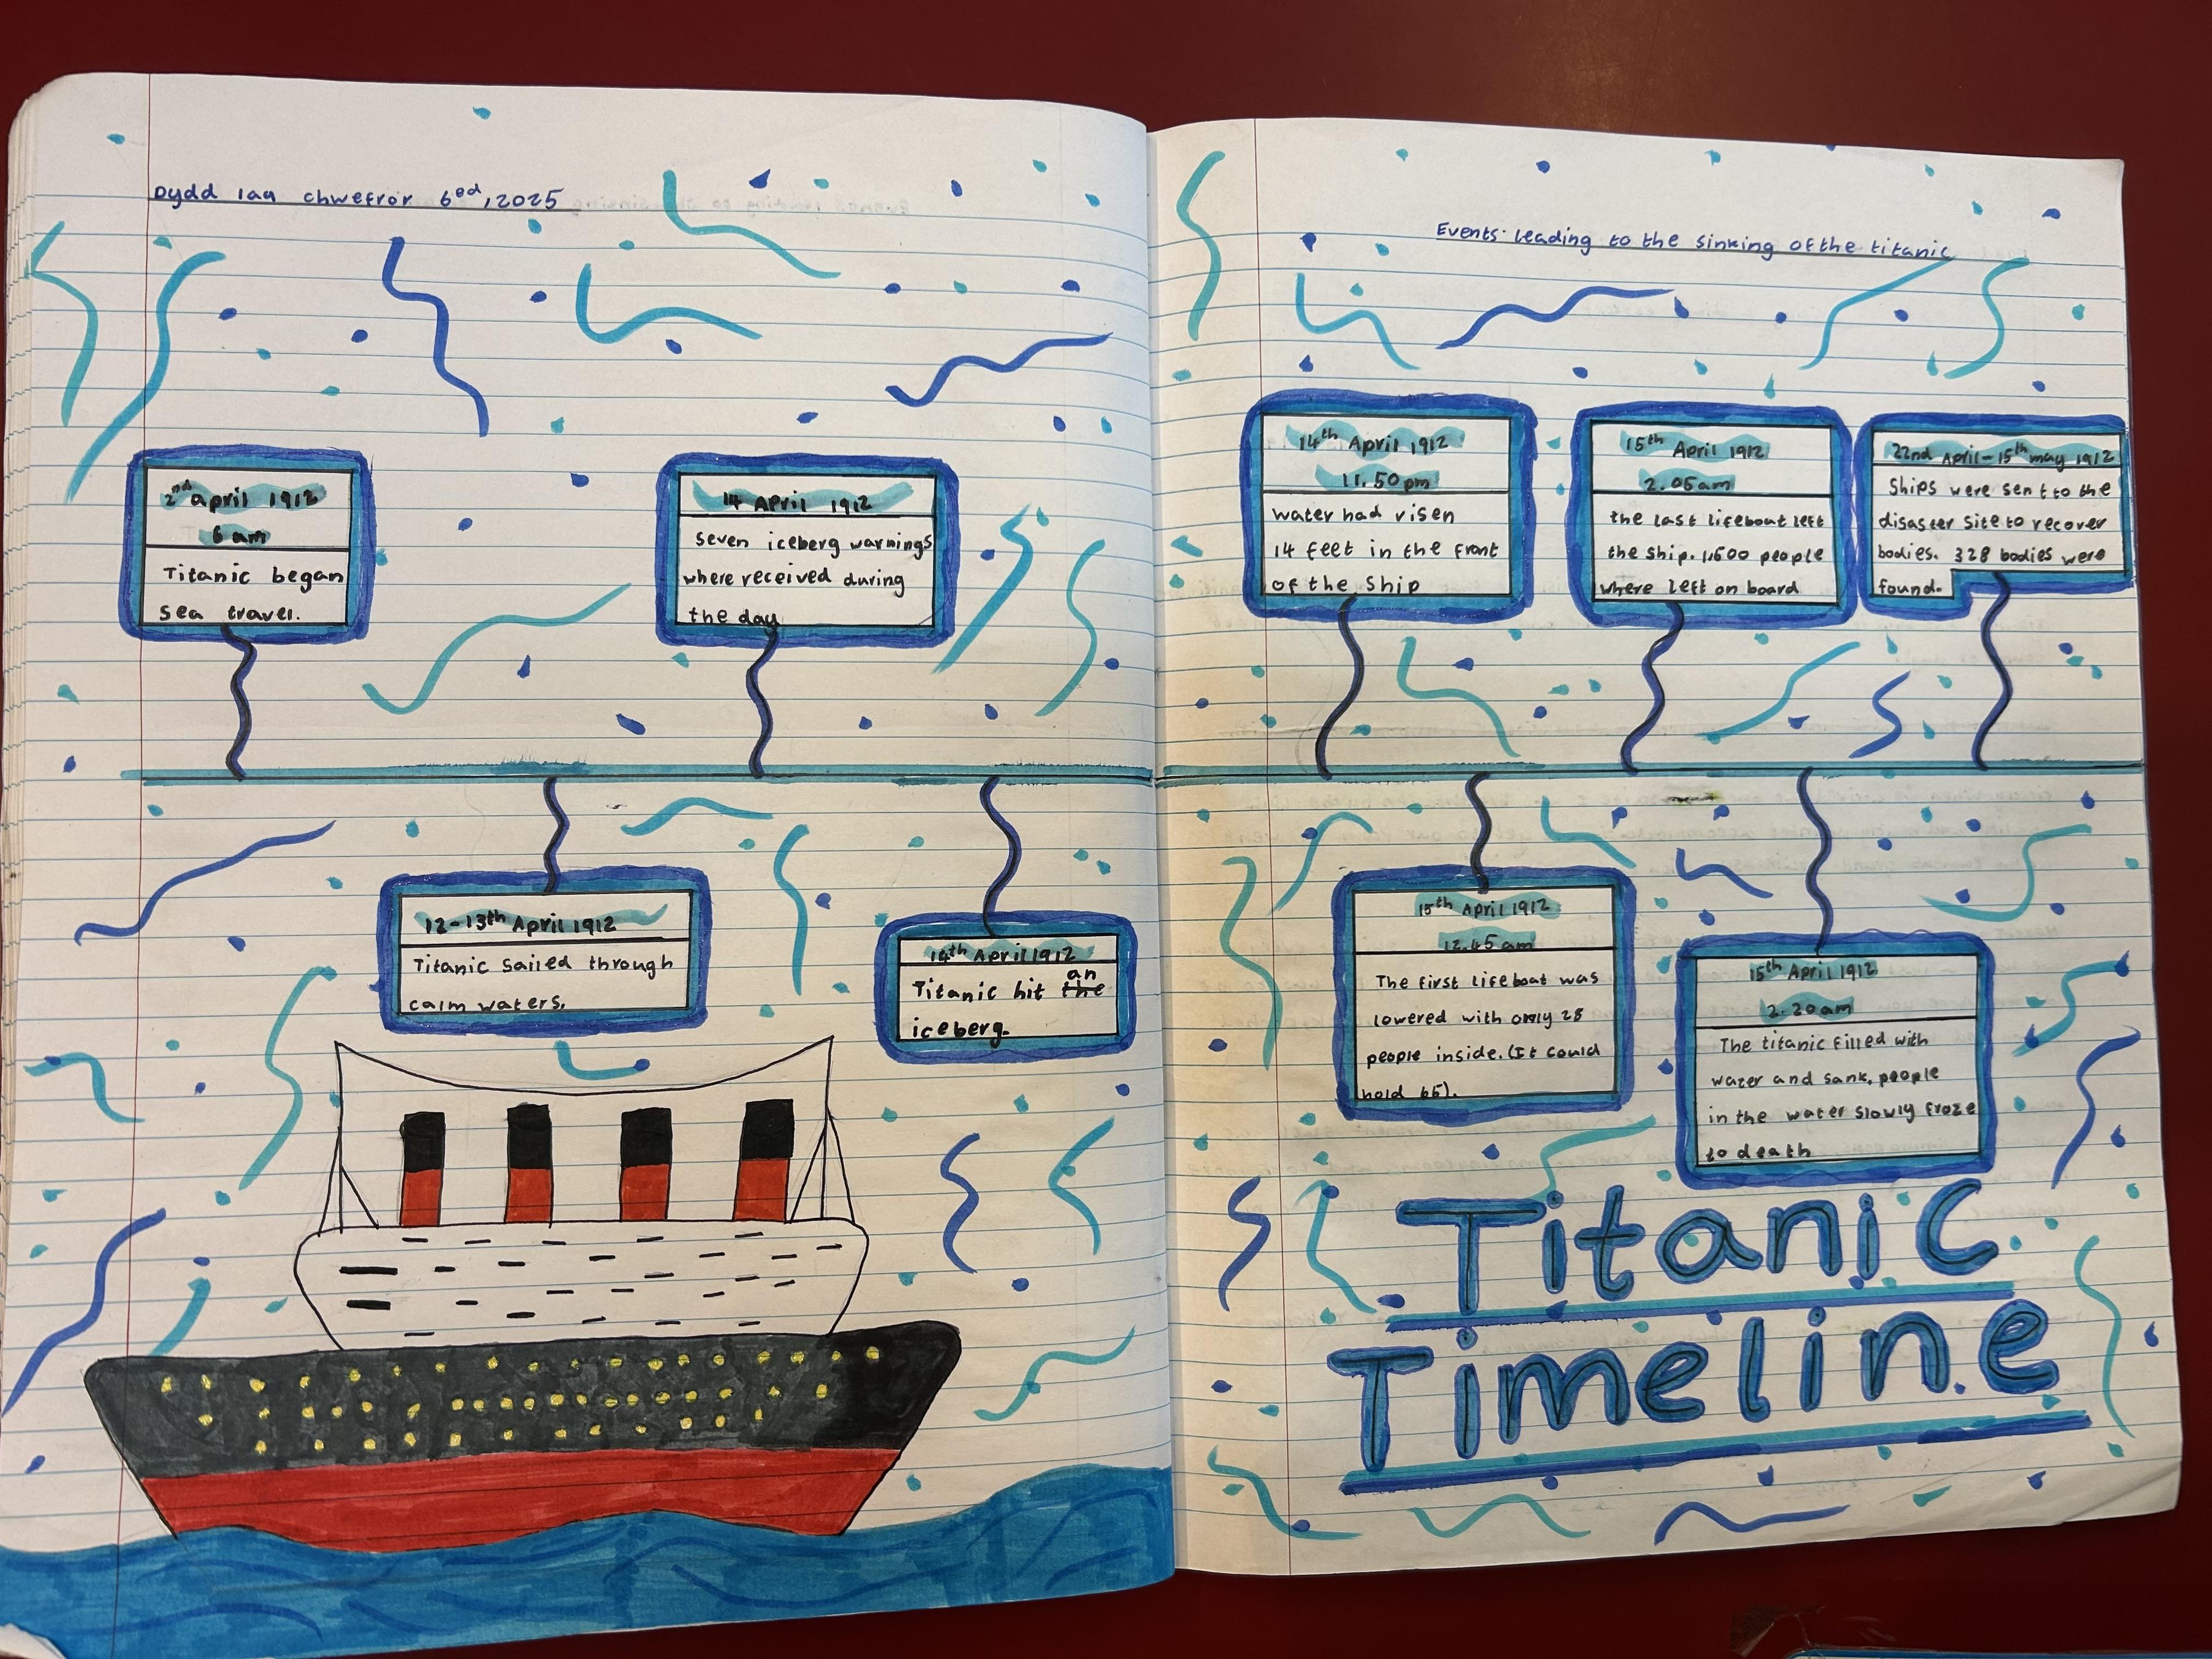 Dydd Iau chwefror 6ed, 2025
Events leading to the sinking of the titanic
2nd april 1912
6 am
Titanic began
sea travel.
12-13th April 1912
Titanic sailed through
calm waters.
14 April 1912
seven iceberg warnings
where received during
the day
14th April 1912
an
Titanic hit the
iceberg.
14th April 1912
11.50pm
water had risen
14 feet in the front
of the ship
15th April 1912
12.45am
The first lifeboat was
lowered with only 28
people inside. (It could
hold 65).
15th April 1912
2.05am
the last lifeboat left
the ship. 1,500 people
where left on board
15th April 1912
2.20am
The titanic filled with
water and sank, people
in the water slowly froze
to death
22nd April-15th may 1912
Ships were sent to the
disaster site to recover
bodies. 328 bodies were
found.
Titanic
Timeline